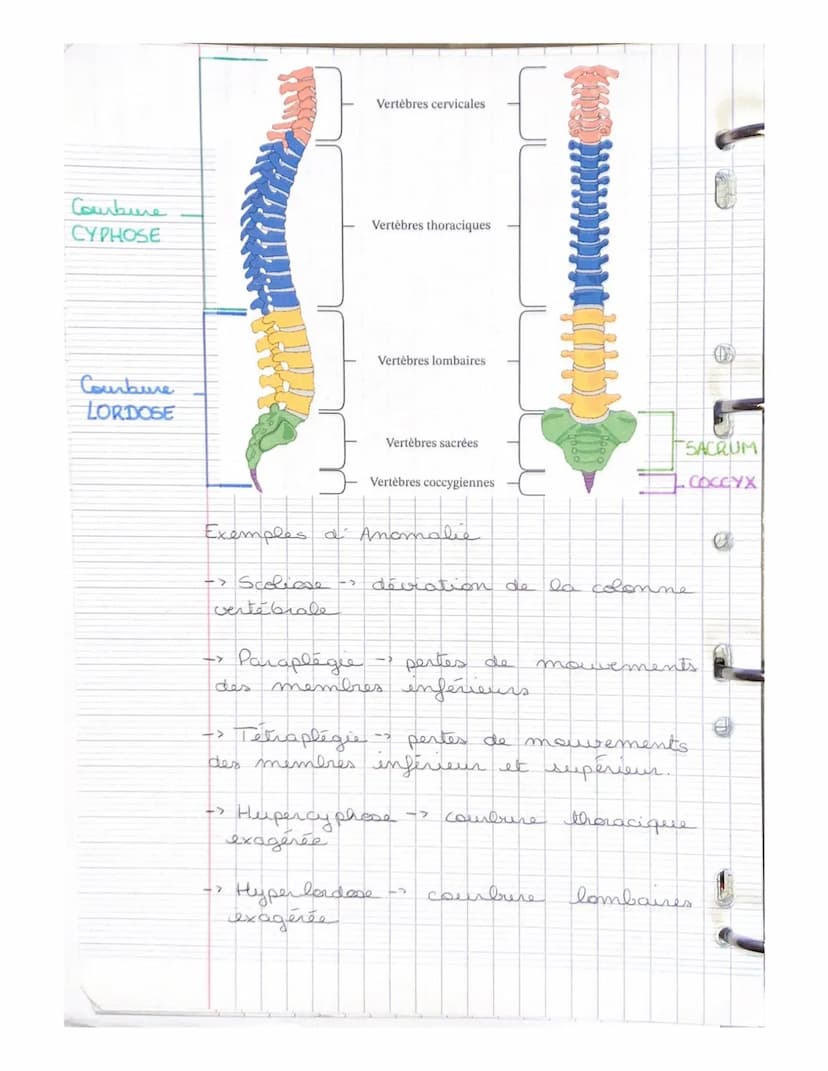 Vertèbres cervicales
Courbure
CYPHOSE
Vertèbres thoraciques
Vertèbres lombaires
Courbure
LORDOSE
Vertèbres sacrées
SACRUM
Vertèbres coccygiennes
COCCYX
Exemples d' Anomalie
-> Scoliose -> déviation de la colonne
vertébrale
-> Paraplégie -> pertes de mouvements
des membres inférieurs
-> Tétraplégie -> pertes de mouvements
des membres inférieur et supérieur.
-> Hupercyphose -> courbure thoracique
exagérée
-> Hyperlordose -> courbure lombaires
exagérée